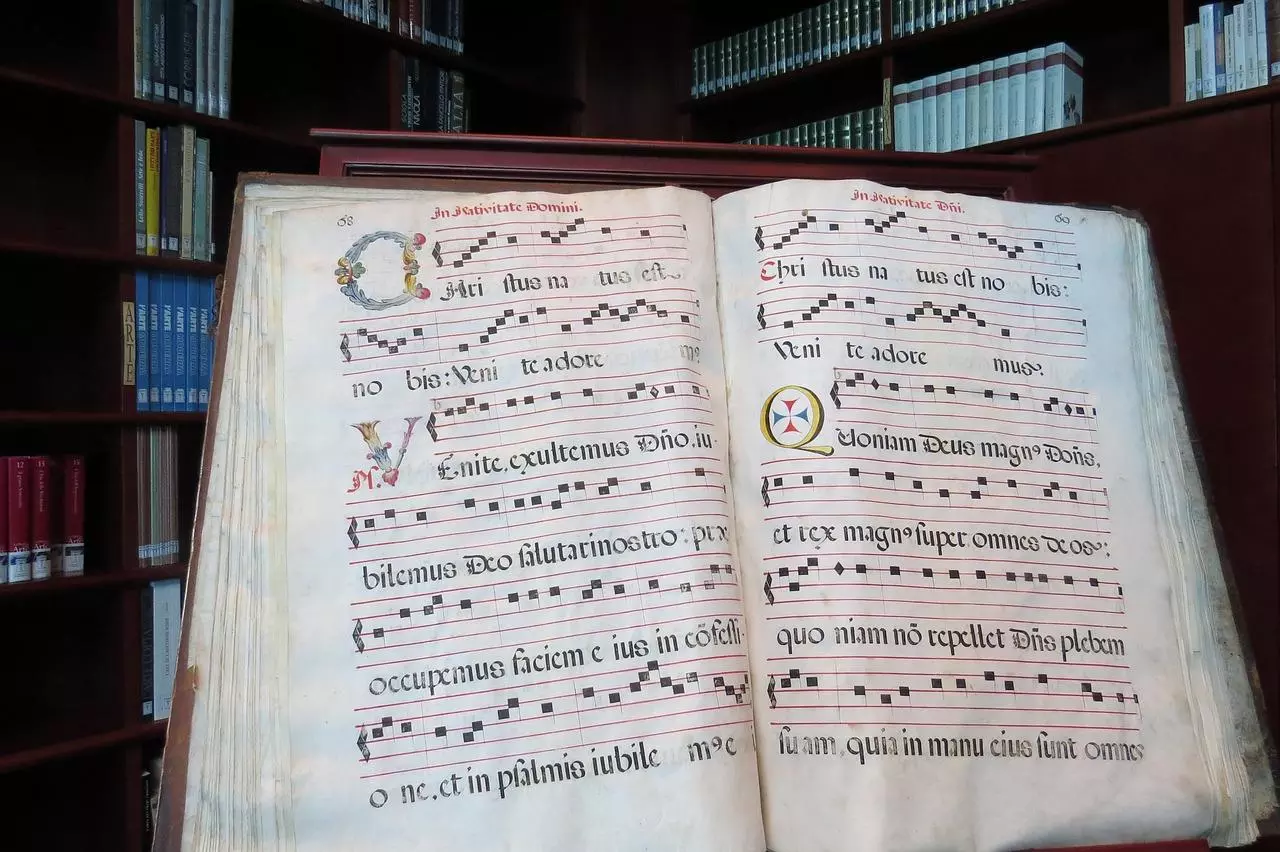 68
In Nativitate Domini.
CHri stus na tus est
no bis: Veni te adore m⁹
VEnite, exultemus Dño, iu-
bilemus Deo salutari nostro: præ
occupemus faciem e ius in cõfessi-
o ne, et in psalmis iubile m⁹ e
In Nativitate Dñi.
Christus na tus est no bis:
Veni te adore mus.
QUoniam Deus magn⁹ Doñs,
et rex magn⁹ super omnes deos:
quo niam nõ repellet Dñs plebem
suam, quia in manu eius sunt omnes
ARTE
L'ARTE
L'ARTE
L'ARTE
L'ARTE